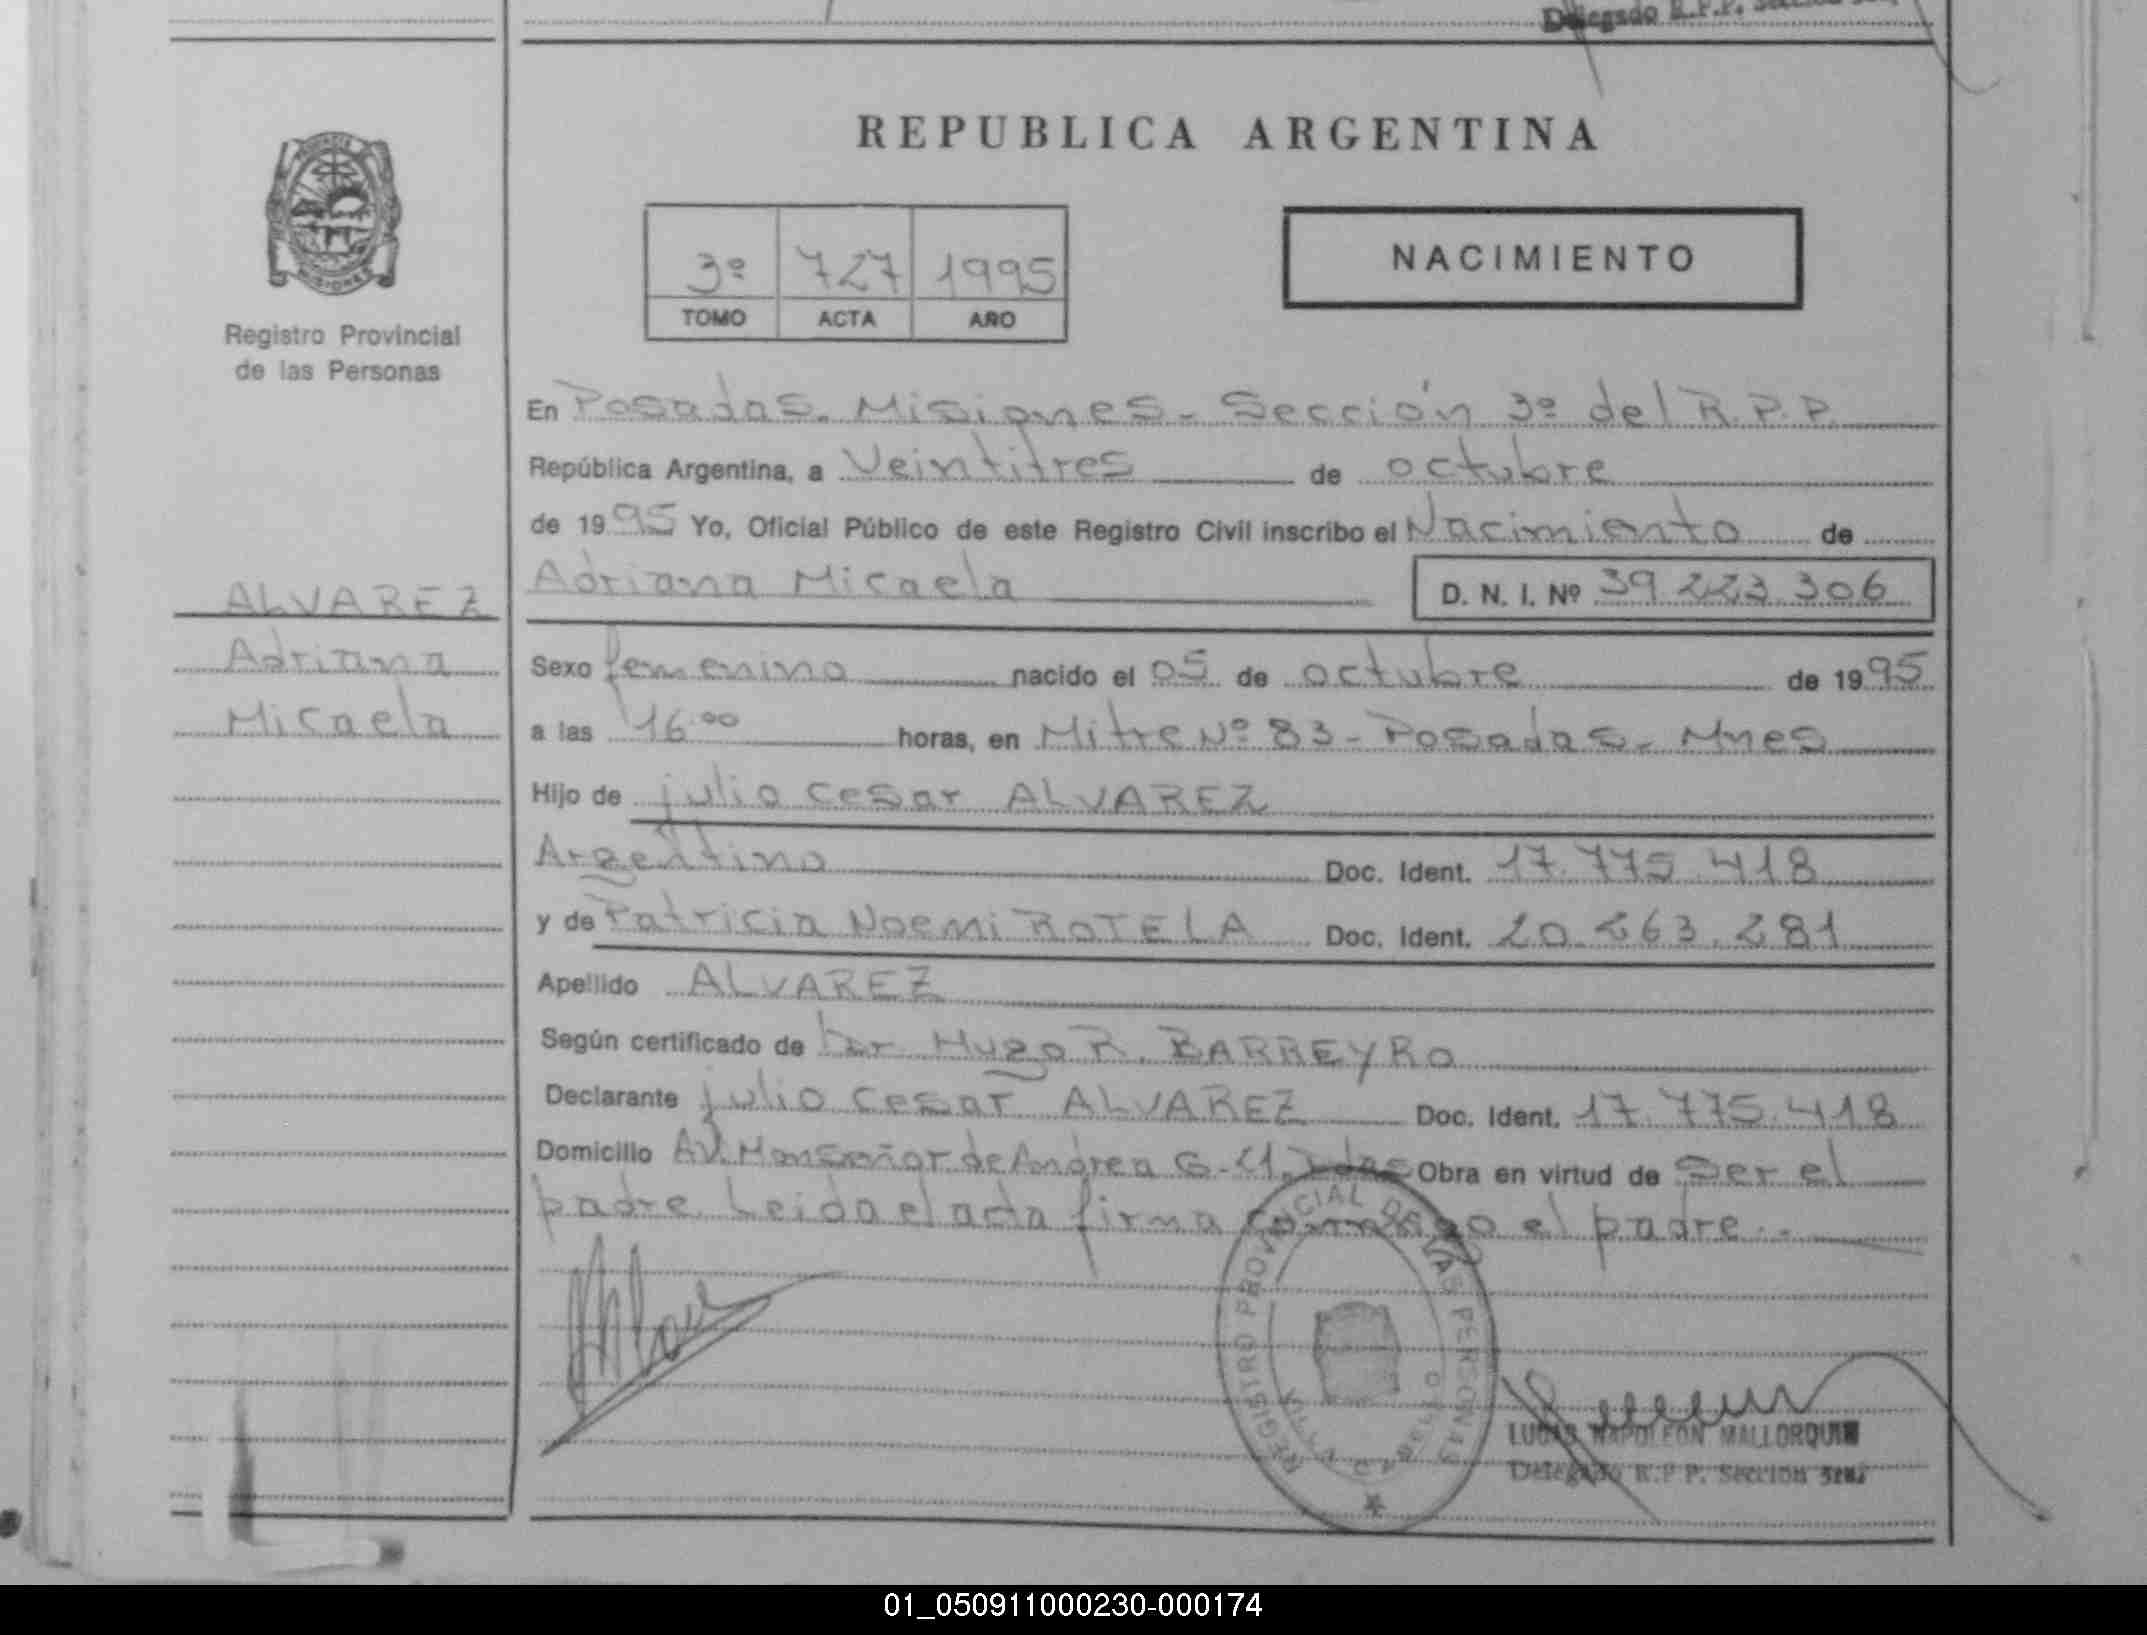 Delegado R.P.P. Sección 3ra.
REPUBLICA ARGENTINA
PROVINCIA
MISIONES
Registro Provincial
de las Personas
3º 727 1995
TOMO ACTA AÑO
NACIMIENTO
En Posadas. Misiones - Sección 3º del R.P.P.
República Argentina, a Veintitres de octubre
de 1995 Yo, Oficial Público de este Registro Civil inscribo el Nacimiento de
Adriana Micaela D. N. I. Nº 39.223.306
ALVAREZ
Adriana
Micaela
Sexo femenino nacido el 05 de octubre de 1995
a las 16.00 horas, en Mitre Nº 83 - Posadas. Mnes
Hijo de julio Cesar ALVAREZ
Argentino Doc. Ident. 17.775.418
y de Patricia Noemi ROTELA Doc. Ident. 20.263.281
Apellido ALVAREZ
Según certificado de Dr. Hugo R. BARREYRO
Declarante julio Cesar ALVAREZ Doc. Ident. 17.775.418
Domicilio AV. Monseñor de Andrea Obra en virtud de Ser el
padre. Leida el acta firma conmigo el padre.-
REGISTRO PROVINCIAL DE LAS PERSONAS
LUCAS NAPOLEON MALLORQUIN
Delegado R.P.P. Sección 3ra.
01_050911000230-000174